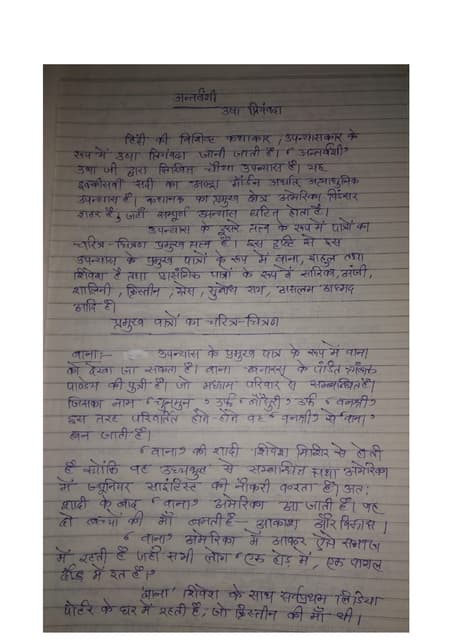 अन्तर्वंशी
उषा प्रियंवदा
हिंदी की विशिष्ट कथाकार, उपन्यासकार के
रूप में उषा प्रियंवदा जानी जाती है। "अन्तर्वंशी"
उषा जी द्वारा लिखित चौथा उपन्यास है। यह
इक्कीसवीं सदी का अल्ट्रा मॉर्डन अर्थात् अत्याधुनिक
उपन्यास है। कथानक का प्रमुख क्षेत्र अमेरिका
शहर है, जहाँ सम्पूर्ण उपन्यास घटित होता है।
उपन्यास के दूसरे तत्व के रूप में पात्रों का
चरित्र-चित्रण प्रमुख तत्व है। इस दृष्टि से इस
उपन्यास के प्रमुख पात्रों के रूप में वाना, राहुल तथा
शिवेश है तथा प्रासंगिक पात्रों के रूप में सारिका, अंजी,
शालिनी, क्रिस्तीन, सुबोध राय,
आदि है।
प्रमुख पात्रों का चरित्र-चित्रण
वाना:- उपन्यास के प्रमुख पात्र के रूप में वाना
को देखा जा सकता है। वाना बनारस के पंडित
पाण्डेय की पुत्री है। जो मध्यम परिवार से सम्बन्धित है।
जिसका नाम "चुनमुन" उर्फ "बाँसुरी" उर्फ "वनश्री"
इस तरह परिवर्तित होते-होते वह "वनश्री" से "वाना"
बन जाती है।
"वाना" की शादी शिवेश मिशिर से होती
है क्योंकि वह उच्चकुल से सम्बन्धित तथा अमेरिका
में ज्यूनियर साइंटिस्ट की नौकरी करता है। अतः
शादी के बाद "वाना" अमेरिका आ जाती है। वह
दो बच्चों की माँ बनती है - आकाश और विकास।
"वाना" अमेरिका में आकर ऐसे समाज
में रहती है जहाँ सभी लोग "एक होड़ में, एक पागल
दौड़ में रत है।"
'वाना' शिवेश के साथ सर्वप्रथम लिडिया
पोर्टर के घर में रहती है, जो क्रिस्तीन की माँ थी।